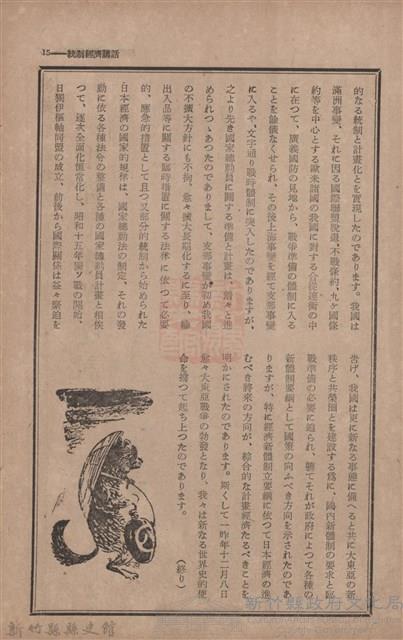 15――統制經濟講話
的なる統制と計畫化とを實現したのであります。我國は
滿洲事變、それに因る國際聯盟脫退、不戰條約、九ケ國條
約等を中心とする歐米諸國の我國に對する合從連衡の中
に在つて、廣義國防の見地から、戰爭準備の體制に入る
ことを餘儀なくせられ、その後上海事變を經て支那事變
に入るや、文字通り戰時體制に突入したのでありますが、
之より先き國家總動員に關する準備と計畫は、着々と進
められつゝあつたのでありまして、支那事變が初め我國
の不擴大方針にも不拘、愈々擴大長期化するに至り、輸
出入品等に關する臨時措置に關する法律に依つて必要
的、應急的措置として且つ又部分的統制から始められた
日本經濟の國家的規律は、國家總動法の制定、それの發
動に依る各種法令の整備と各種の國家總動員計畫と相俟
つて、逐次全面化恆常化し、昭和十五年獨ソ戰の開始、
日獨伊樞軸同盟の成立、前後から國際關係は益々緊迫を
告げ、我國は更に新なる事態に備へると共に大東亞の新
秩序と共榮圈とを建設する爲に、國內新體制の要求と臨
戰準備の必要に迫られ、軈てそれが政府によつて各種の
新體制要綱として國策の向ふべき方向を示されたのであ
りますが、特に經濟新體制立要綱に依つて日本經濟の進
むべき將來の方向が、綜合的な計畫經濟たるべきことを
明かにされたのであります。斯くして一昨年十二月八日
愈々大東亞戰爭の勃發となり、我々は新なる世界史的使
命を擔つて起ち上つたのであります。
（終り）
新竹縣縣史館
新竹縣政府文化局